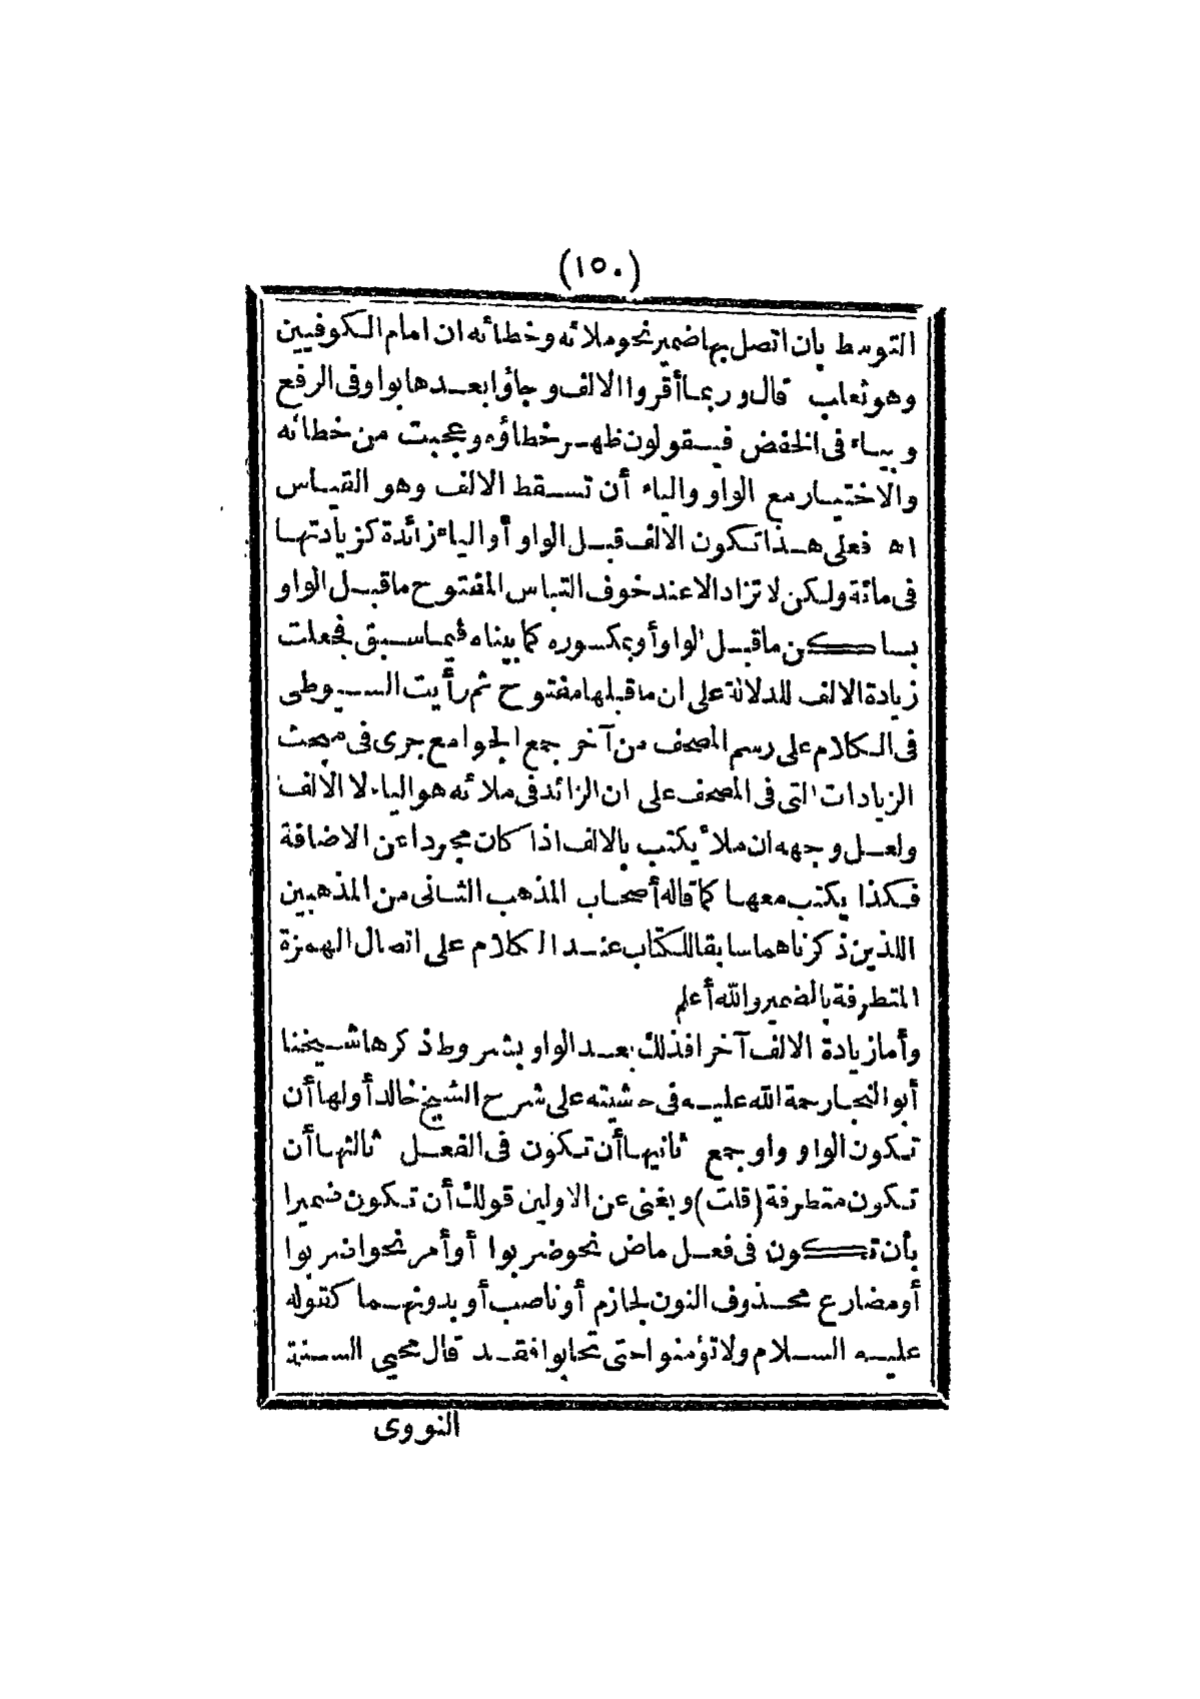 (١٥٠)
التوسط بأن اتصل بها ضمير نحو ملائه وخطائه ان امام الكوفيين
وهو ثعلب قال وربما أقروا الالف وجاؤا بعدها بواو فى الرفع
وبياء فى الخفض فيقولون ظهر خطاؤه وعجبت من خطائه
والاختيار مع الواو والياء أن تسقط الالف وهو القياس
اه فعلى هذا تكون الالف قبل الواو أو الياء زائدة كزيادتها
فى مائة ولكن لا تزاد الا عند خوف التباس المفتوح ما قبل الواو
بساكن ما قبل الواو أو بمكسوره كما بيناه فيما سبق فجعلت
زيادة الالف للدلالة على ان ما قبلها مفتوح ثم رأيت السيوطى
فى الكلام على رسم المصحف من آخر جمع الجوامع جرى فى مبحث
الزيادات التى فى المصحف على ان الزائد فى ملائه هو الياء لا الالف
ولعل وجهه ان ملأ يكتب بالالف اذا كان مجردا عن الاضافة
فكذا يكتب معها كما قاله أصحاب المذهب الثانى من المذهبين
اللذين ذكرناهما سابقا للكتاب عند الكلام على اتصال الهمزة
المتطرفة بالضمير والله أعلم
وأما زيادة الالف آخرا فذلك بعد الواو بشروط ذكرها شيخنا
أبو النجا رحمة الله عليه فى حشيته على شرح الشيخ خالد أولها أن
تكون الواو واو جمع ثانيها أن تكون فى الفعل ثالثها أن
تكون متطرفة (قلت) ويغنى عن الاولين قولك أن تكون ضميرا
بأن تكون فى فعل ماض نحو ضربوا أو أمر نحو اضربوا
أو مضارع محذوف النون لجازم أو ناصب أو بدونهما كقوله
عليه السلام ولا تؤمنوا حتى تحابوا فقد قال محيى السنة
النووى